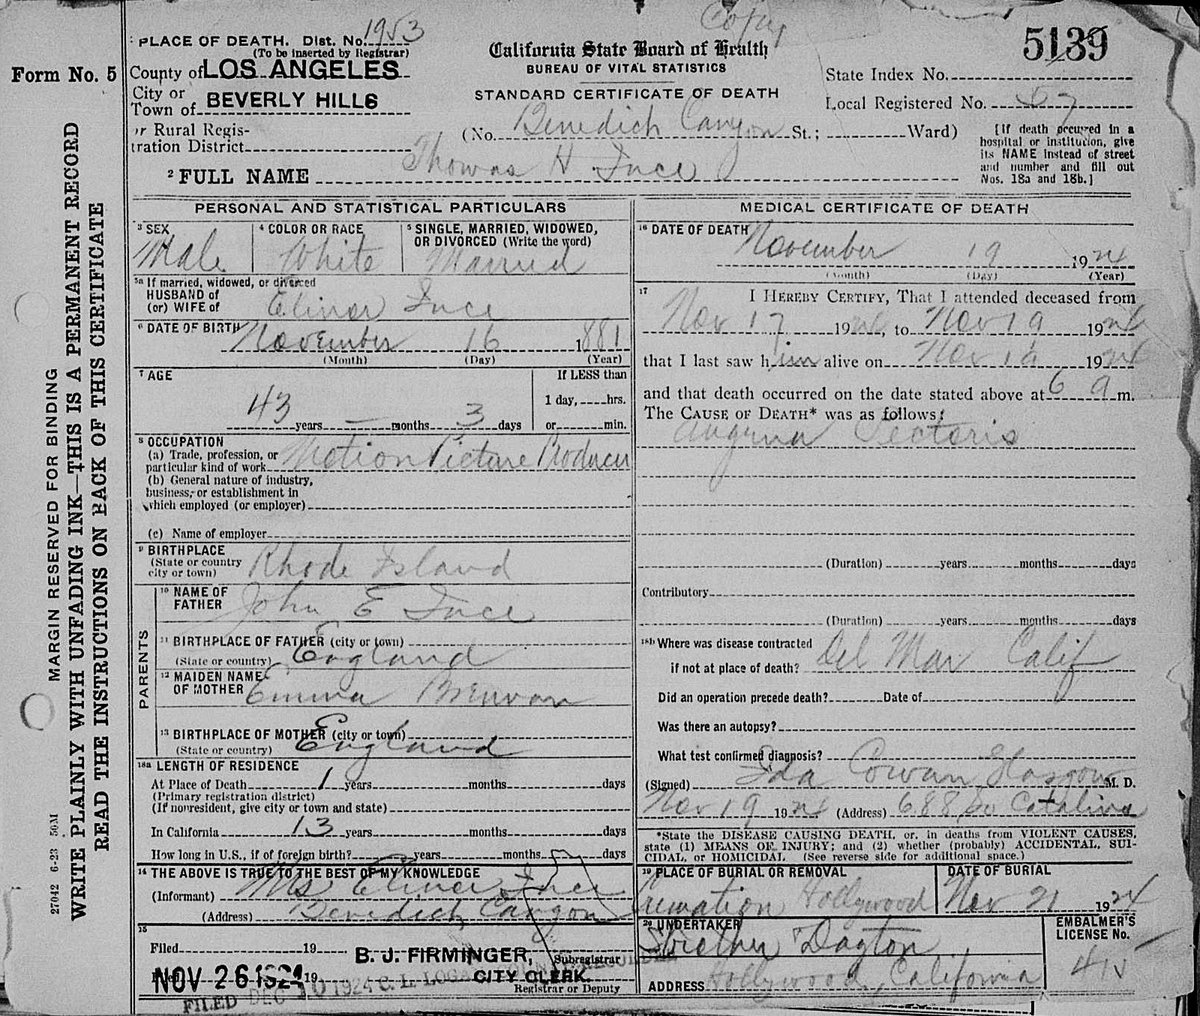 Copy
PLACE OF DEATH. Dist. No. 1953
(To be inserted by Registrar)
County of LOS ANGELES
City or
Town of BEVERLY HILLS
or Rural Regis-
tration District
California State Board of Health
BUREAU OF VITAL STATISTICS
STANDARD CERTIFICATE OF DEATH
(No. Benedich Canyon St.; Ward)
5139
State Index No.
Local Registered No. 57
[If death occured in a
hospital or institution, give
its NAME instead of street
and number and fill out
Nos. 18a and 18b.]
2 FULL NAME Thomas H Ince
Form No. 5
MARGIN RESERVED FOR BINDING
WRITE PLAINLY WITH UNFADING INK—THIS IS A PERMANENT RECORD
READ THE INSTRUCTIONS ON BACK OF THIS CERTIFICATE
27042 6-23 50M
PERSONAL AND STATISTICAL PARTICULARS
3 SEX
Male
4 COLOR OR RACE
White
5 SINGLE, MARRIED, WIDOWED,
OR DIVORCED (Write the word)
Married
5a If married, widowed, or divorced
HUSBAND of
(or) WIFE of Elinor Ince
6 DATE OF BIRTH November 16 1881
(Month) (Day) (Year)
7 AGE
43 years — months 3 days
If LESS than
1 day, hrs.
or min.
8 OCCUPATION
(a) Trade, profession, or
particular kind of work Motion Picture Producer
(b) General nature of industry,
business, or establishment in
which employed (or employer)
(c) Name of employer
9 BIRTHPLACE
(State or country
city or town) Rhode Island
PARENTS
10 NAME OF
FATHER John E Ince
11 BIRTHPLACE OF FATHER (city or town)
(State or country) England
12 MAIDEN NAME
OF MOTHER Emma
13 BIRTHPLACE OF MOTHER (city or town)
(State or country) England
18a LENGTH OF RESIDENCE
At Place of Death 1 years months days
(Primary registration district)
(If nonresident, give city or town and state)
In California 13 years months days
How long in U.S., if of foreign birth? years months days
14 THE ABOVE IS TRUE TO THE BEST OF MY KNOWLEDGE
(Informant) Mrs Elinor Ince
(Address) Benedich Canyon
15
Filed 19
B. J. FIRMINGER, Subregistrar
NOV 26 1924 19
CITY CLERK
Registrar or Deputy
FILED DEC 10 1924 C. L. LOGAN
MEDICAL CERTIFICATE OF DEATH
16 DATE OF DEATH November 19 1924
(Month) (Day) (Year)
17 I HEREBY CERTIFY, That I attended deceased from
Nov 17 1924, to Nov 19 1924
that I last saw him alive on Nov 19 1924
and that death occurred on the date stated above at 6 a m.
The CAUSE OF DEATH* was as follows:
Angina Pectoris
(Duration) years months days
Contributory
(Duration) years months days
18b Where was disease contracted
if not at place of death? Del Mar Calif
Did an operation precede death? Date of
Was there an autopsy?
What test confirmed diagnosis?
(Signed) Ida Cowan Glasgow M. D.
Nov 19 1924 (Address) 688 So Catalina
*State the DISEASE CAUSING DEATH, or, in deaths from VIOLENT CAUSES,
state (1) MEANS OF INJURY; and (2) whether (probably) ACCIDENTAL, SUI-
CIDAL, or HOMICIDAL. (See reverse side for additional space.)
19 PLACE OF BURIAL OR REMOVAL
Cremation Hollywood
DATE OF BURIAL
Nov 21 1924
20 UNDERTAKER
Strother Dayton
ADDRESS Hollywood, California
EMBALMER'S
LICENSE No.